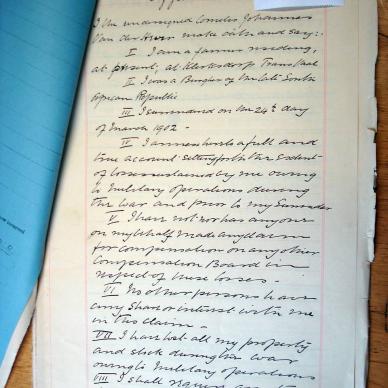 I the undersigned Cornelis Johannes
van der Merwe make oath and say:-
I I am a farmer residing,
at present, at Klerksdorp Transvaal
II I was a Burgher of the late South
African Republic
III I surrendered on the 24th day
of March 1902 -
IV I annex hereto a full and
true account setting forth the extent
of losses sustained by me owing
to Military operations during
the war and prior to my surrender
V I have not nor has anyone
on my behalf made any claim
for compensation on any other
Compensation Board in
respect of these losses -
VI No other persons have
any share or interest with me
in this claim -
VII I have lost all my property
and stock during the war
owing to Military operations
VIII I shall require